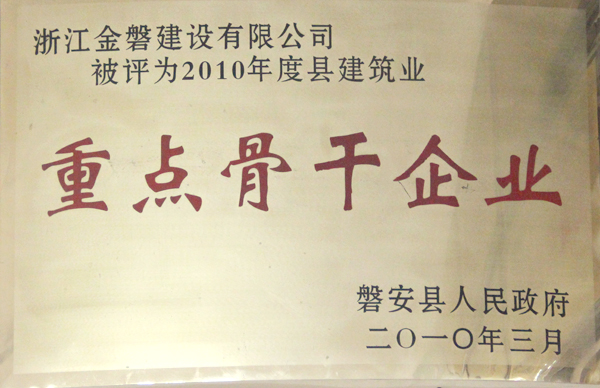 浙江金磐建设有限公司
被评为2010年度县建筑业
重点骨干企业
磐安县人民政府
二〇一〇年三月